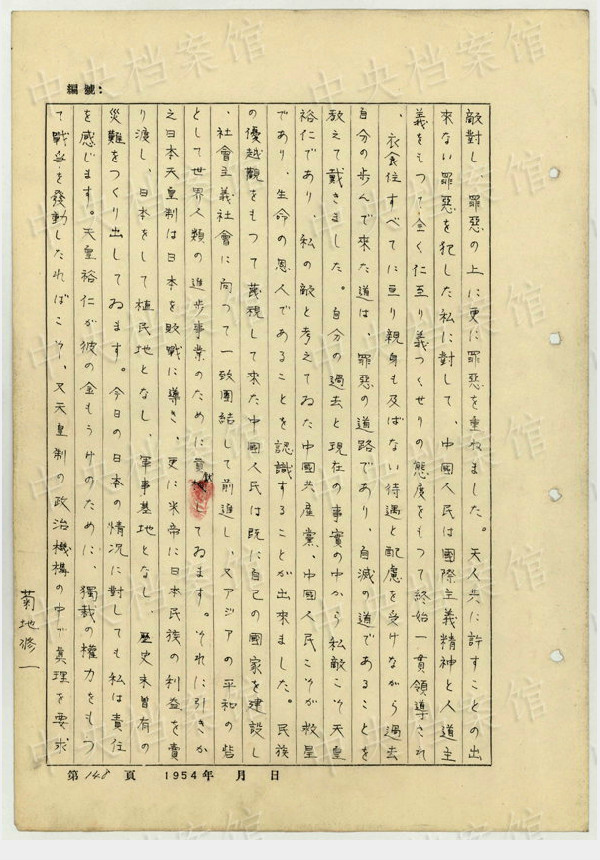 編號:
敵對し、罪惡の上に更に罪惡を重ねました。天人共に許すことの出
來ない罪惡を犯した私に對して、中國人民は國際主義精神と人道主
義をもつて全く仁互り義つくせりの態度をもつて終始一貫領導され
、衣食住すべてに亘り親身も及ばない待遇と配慮を受けながら過去
自分の歩んで來た道は、罪惡の道路であり、自滅の道であることを
教えて戴きました。自分の過去と現在の事實の中から私敵こそ天皇
裕仁であり、私の敵と考えてゐた中國共產黨、中國人民こそが救星
であり、生命の恩人であることを認識することが出來ました。民族
の優越觀をもつて蔑視して來た中國人民は既に自己の國家を建設し
、社會主義社會に向つて一致團結して前進し、又アジアの平和の砦
として世界人類の進歩事業のために貢献してゐます。それに引きか
之日本天皇制は日本を敗戰に導き、更に米帝に日本民族の利益を賣
り渡し、日本をして植民地となし、軍事基地となし、歷史未曾有の
災難をつくり出してゐます。今日の日本の情況に對しても私は責任
を感じます。天皇裕仁が彼の金もうけのために、獨裁の權力をもつ
て戰爭を發動したればこそ、又天皇制の政治機構の中で眞理を要求
菊地修一
第 148 頁 1954年 月 日
中央档案馆